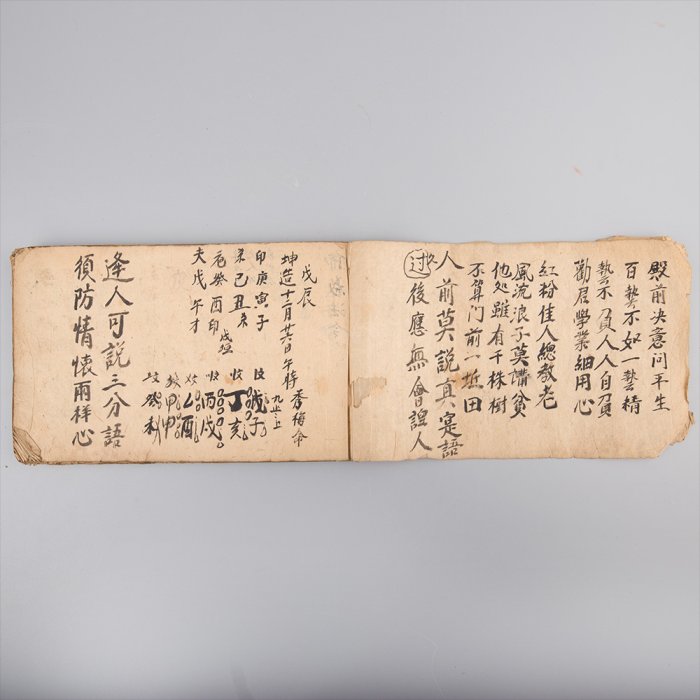 殿前决意问平生
百藝不如一藝精
藝不負人人自負
勸君學業細用心
紅粉佳人總教老
風流浪子莫講貧
他处雖有千株樹
不算門前一坵田
人前莫說真寔語
过後應無會誼人
戊辰
坤造十二月廿六日午時 季梅命
卯庚寅子
未己丑未
酉癸酉印
夫戊午才
戊子
丁亥
丙戌
乙酉
甲申
逢人可說三分語
須防情懷兩样心